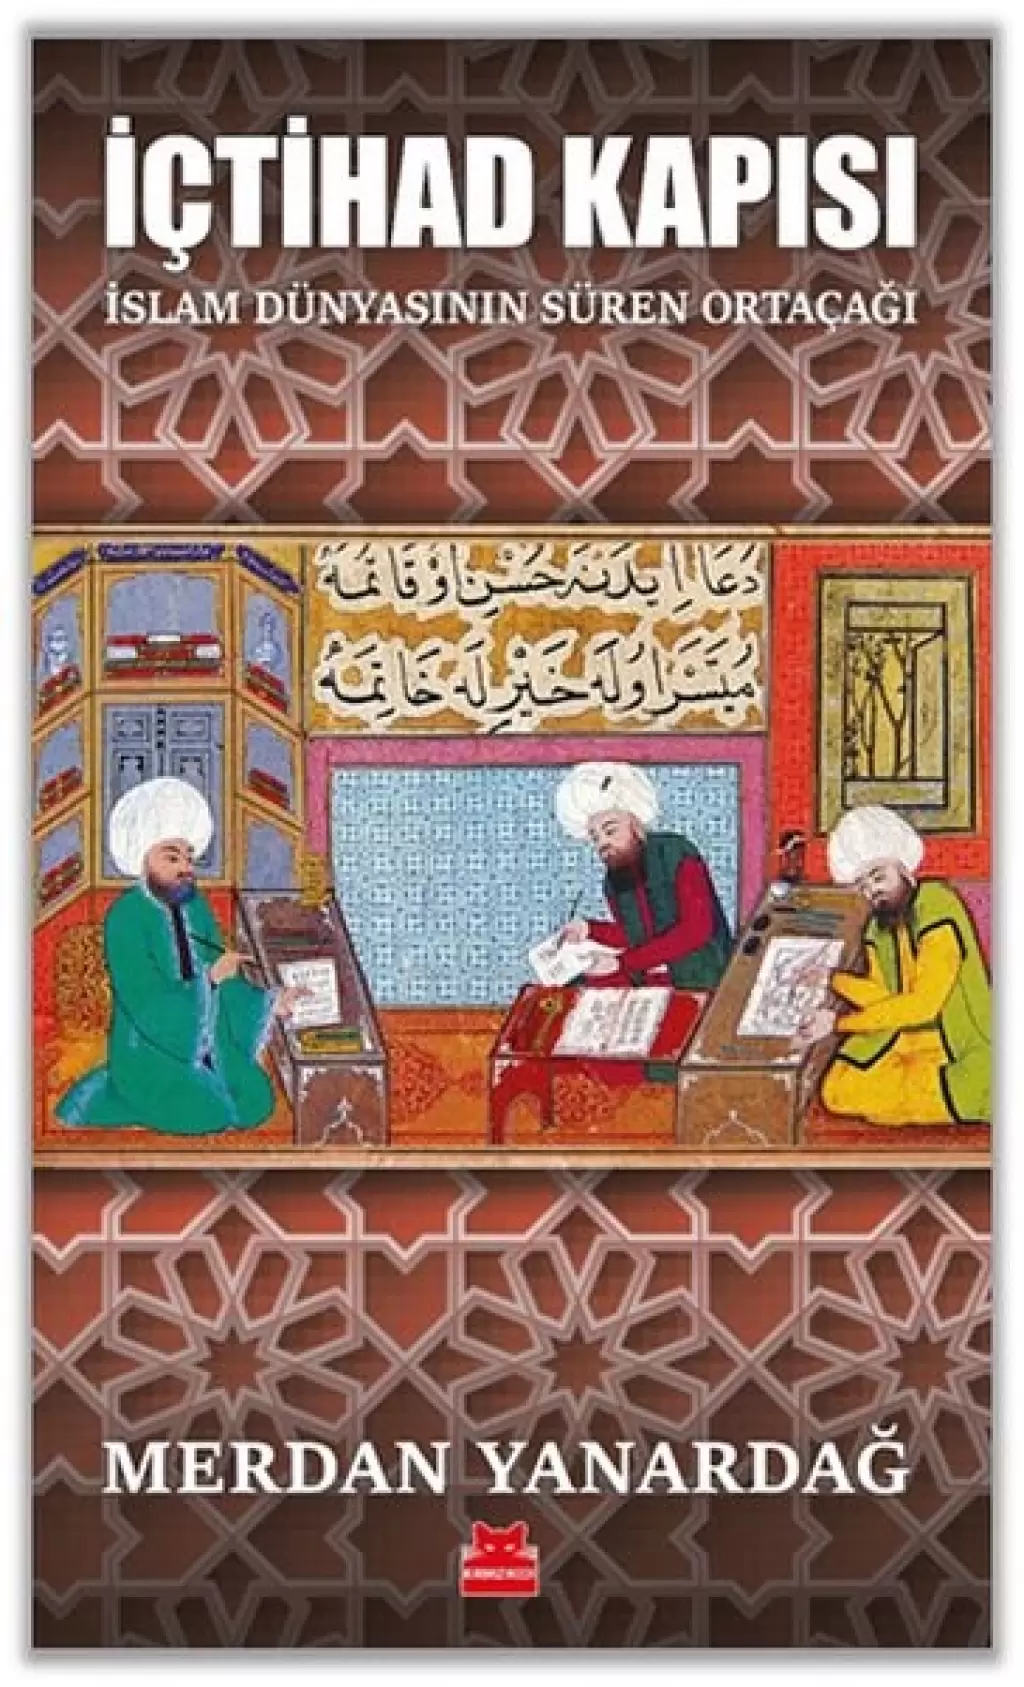 İÇTİHAD KAPISI
İSLAM DÜNYASININ SÜREN ORTAÇAĞI
دُعَا اِيدَنَه حُسْنِ اوقَاتمَهُ
مُيَسَّرْ اولَه خَيْرِلَه خَاتِمَهُ
MERDAN YANARDAĞ
KIRMIZI KEDİ